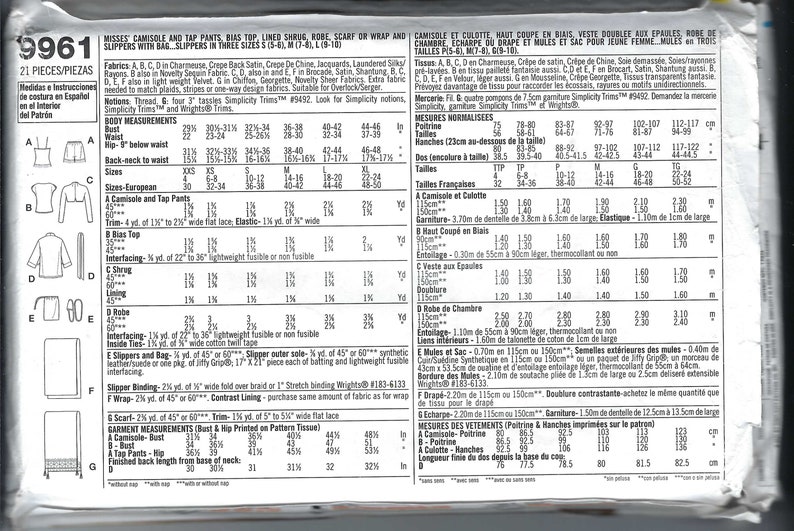 9961
21 PIECES/PIEZAS
Medidas e Instrucciones
de costura en Español
en el Interior
del Patrón
A
B
C
D
D
E
E
F
G
MISSES' CAMISOLE AND TAP PANTS, BIAS TOP, LINED SHRUG, ROBE, SCARF OR WRAP AND
SLIPPERS WITH BAG...SLIPPERS IN THREE SIZES S (5-6), M (7-8), L (9-10)
Fabrics: A, B, C, D in Charmeuse, Crepe Back Satin, Crepe De Chine, Jacquards, Laundered Silks/
Rayons. B also in Novelty Sequin Fabric. C, D, also in and E, F in Brocade, Satin, Shantung, B, C,
D, E, F also in light weight Velvet. G in Chiffon, Georgette, Novelty Sheer Fabrics. Extra fabric
needed to match plaids, stripes or one-way design fabrics. Suitable for Overlock/Serger.
Notions: Thread. G: four 3" tassles Simplicity Trims™ #9492. Look for Simplicity notions,
Simplicity Trims and Wrights® Trims.
BODY MEASUREMENTS
Bust 29½ 30½-31½ 32½-34 36-38 40-42 44-46 In
Waist 22 23-24 25-26½ 28-30 32-34 37-39 "
Hip- 9" below waist
31½ 32½-33½ 34½-36 38-40 42-44 46-48 "
Back-neck to waist 15¼ 15½-15¾ 16-16¼ 16½-16¾ 17-17¼ 17⅜-17½ "
Sizes XXS XS S M L XL
4 6-8 10-12 14-16 18-20 22-24
Sizes-European 30 32-34 36-38 40-42 44-46 48-50
A Camisole and Tap Pants
Trim- 4 yd. of 1½" to 2½" wide flat lace; Elastic- 1⅛ yd. of ⅜" wide
B Bias Top
Interfacing- ⅜ yd. of 22" to 36" lightweight fusible or non fusible
C Shrug
Lining
D Robe
Interfacing- 1⅛ yd. of 22" to 36" lightweight fusible or non fusible
Inside Ties- 1¾ yd. of ⅜" wide cotton twill tape
E Slippers and Bag- ¾ yd. of 45" or 60"***; Slipper outer sole- ⅜ yd. of 45" or 60"*** synthetic
leather/suede or one pkg. of Jiffy Grip®; 17" X 21" piece each of batting and lightweight fusible
interfacing.
Slipper Binding- 2¼ yd. of ½" wide fold over braid or 1" Stretch binding Wrights® #183-6133
F Wrap- 2⅜ yd. of 45" or 60"***. Contrast Lining - purchase same amount of fabric as for wrap
G Scarf- 2⅜ yd. of 45" or 60"***. Trim- 1⅝ yd. of 5" to 5¼" wide flat lace
GARMENT MEASUREMENTS (Bust & Hip Printed on Pattern Tissue)
A Camisole- Bust 31½ 34 36½ 40½ 44½ 48½ In
B - Bust 34 36½ 39 43 47 51 "
A Tap Pants - Hip 36½ 39 41½ 45½ 49½ 53½ "
Finished back length from base of neck:
D 30 30½ 31 31½ 32 32½ In
*without nap **with nap ***with or without nap
CAMISOLE ET CULOTTE, HAUT COUPE EN BIAIS, VESTE DOUBLEE AUX EPAULES, ROBE DE
CHAMBRE, ECHARPE OU DRAPE ET MULES ET SAC POUR JEUNE FEMME...MULES en TROIS
TAILLES P(5-6), M(7-8), G(9-10).
Tissus: A, B, C, D en Charmeuse, Crêpe de satin, Crêpe De Chine, Soie damassée, Soies/rayonnes
pré-lavées. B en tissu pailleté fantaisie aussi. C, D et E, F en Brocart, Satin, Shantung aussi. B,
C, D, E, F en Velour, léger aussi. G en Mousseline, Crêpe Georgette, Tissus transparents fantasie.
Prévoyez davantage de tissu pour raccorder les écossais, rayures ou motifs unidirectionnels.
Mercerie: Fil. G: quatre pompons de 7.5cm garniture Simplicity Trims™ #9492. Demandez la mercerie
Simplicity, garniture Simplicity Trims™ et Wrights®.
MESURES NORMALISEES
Poitrine 75 78-80 83-87 92-97 102-107 112-117 cm
Tailles 56 58-61 64-67 71-76 81-87 94-99 "
Hanches (23cm au-dessous de la taille)
80 83-85 88-92 97-102 107-112 117-122 "
Dos (encolure à taille) 38.5 39.5-40 40.5-41.5 42-42.5 43-44 44-44.5 "
Tailles TTP TP P M G TG
4 6-8 10-12 14-16 18-20 22-24
Tailles Françaises 32 34-36 38-40 42-44 46-48 50-52
A Camisole et Culotte
115cm** 1.50 1.60 1.70 1.90 2.10 2.30 m
Garniture- 3.70m de dentelle de 3.8cm à 6.3cm de large; Elastique - 1.10m de 1cm de large
B Haut Coupé en Biais
90cm** 1.40 1.50 1.60 1.60 1.70 1.80 m
Entoilage - 0.30m de 55cm à 90cm léger, thermocollant ou non
C Veste aux Epaules
115cm** 1.40 1.50 1.50 1.60 1.60 1.70 m
150cm** 1.00 1.30 1.40 1.50 1.60 1.60 "
Doublure
115cm* 1.20 1.30 1.40 1.50 1.50 1.60 m
D Robe de Chambre
115cm** 2.50 2.70 2.80 2.80 2.90 3.10 m
150cm** 2.00 2.00 2.30 2.30 2.30 2.40 "
Entoilage- 1.10m de 55cm à 90cm léger, thermocollant ou non
Liens intérieurs - 1.60m de talonette de coton de 1cm de large
E Mules et Sac - 0.70m en 115cm ou 150cm***; Semelles extérieures des mules- 0.40m de
Cuir/Suédine Synthetique en 115cm ou 150cm*** ou un paquet de Jiffy Grip®; un morceau de
43cm x 53.5cm de ouatine et d'entoilage entoilage léger, thermocollant de 55cm à 64cm.
Bordure des Mules- 2.10m de soutache pliée de 1.3cm de large ou 2.5cm deliseré extensible
Wrights® #183-6133.
F Drapé- 2.20m de 115cm ou 150cm***. Doublure contrastante- achetez le même quantité que
de tissu pour le drapé
G Echarpe- 2.20m de 115cm ou 150cm***. Garniture- 1.50m de dentelle de 12.5cm à 13.5cm de large
MESURES DES VETEMENTS (Poitrine & Hanches imprimées sur le patron)
A Camisole- Poitrine 80 86.5 92.5 103 113 123 cm
B - Poitrine 86.5 92.5 99 110 120 130 "
A Culotte - Hanches 92.5 99 106 116 126 136 "
Longueur finie du dos depuis la base du cou:
D 76 77.5 78.5 80 81.5 82.5 cm
*sans sens **avec sens ***avec ou sans sens *sin pelusa **con pelusa ***con o sin pelusa